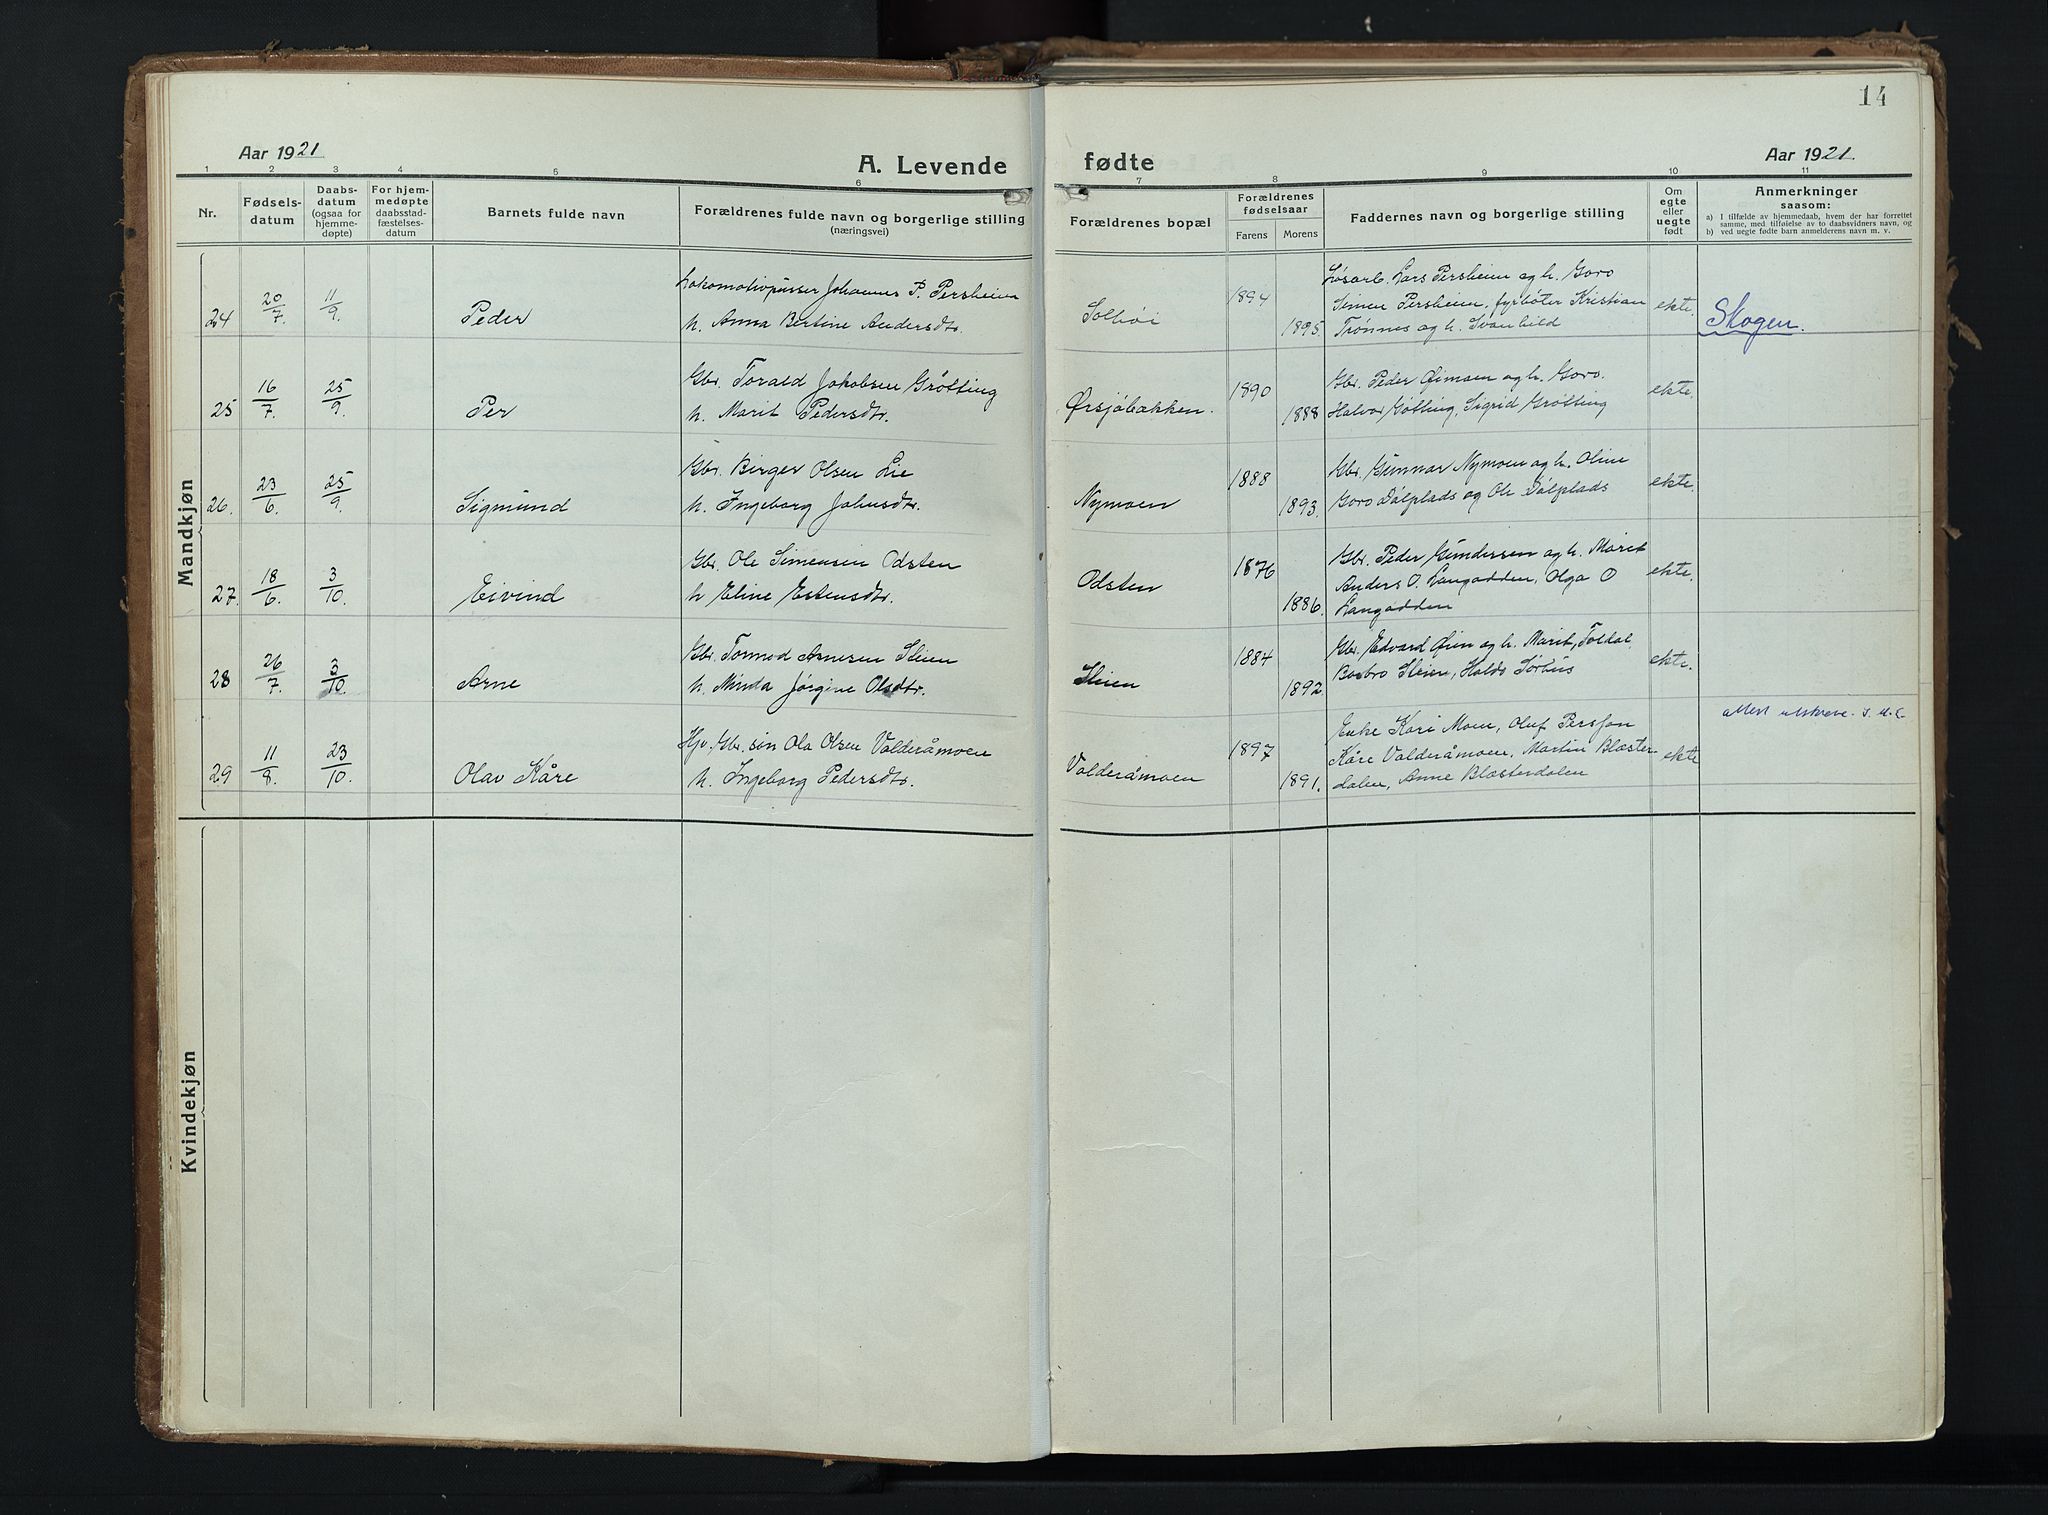 14
Aar 1921
A. Levende fødte
Aar 1921.
1 2 3 4 5 6 7 8 9 10 11
Nr.
Fødselsdatum
Daabsdatum (ogsaa for hjemmedøpte)
For hjemmedøpte daabsstadfæstelsesdatum
Barnets fulde navn
Forældrenes fulde navn og borgerlige stilling (næringsvei)
Forældrenes bopæl
Forældrenes fødselsaar
Farens Morens
Faddernes navn og borgerlige stilling
Om egte eller uegte født
Anmerkninger saasom:
a) I tilfælde av hjemmedaab, hvem der har forrettet samme, med tilføielse av to daabsvidners navn, og
b) ved uegte fødte barn anmelderens navn m. v.
Mandkjøn
24 20/7. 11/9. Peder
Lokomotivpusser Johannes P. Persheim
h. Anna Bertine Andersdtr.
Solbøi 1894 1895.
Løsarb. Lars Persheim og h. Goro
Simen Persheim, fyrbøter Kristian
Trønnes og h. Svanhild
ekte.
Skogen.
25 16/7. 25/9. Per
Gbr. Torald Jakobsen Grøtting
h. Marit Pedersdtr.
Ørsjøbækken. 1890 1888
Gbr. Peder Øimoen og h. Goro.
Halvor Gøtting, Sigrid Grøtting
ekte.
26. 23/6. 25/9. Sigmund
Gbr. Birger Olsen Lie
h. Ingeborg Johnsdtr.
Nymoen 1888 1893.
Gbr. Gunnar Nymoen og h. Oline
Goro Dølplads og Ole Dølplads
ekte.
27. 18/6. 3/10. Eivind
Gbr. Ole Simensen Odsten
h Eline Estensdtr.
Odsten 1876 1886.
Gbr. Peder Gundersen og h. Marit
Anders O. Langodden, Olga O
Langodden
ekte.
28 26/7. 3/10. Arne
Gbr. Tormod Arnesen Steien
h. Minda Jørgine Olsdtr.
Steien 1884 1892.
Gbr. Edvard Øien og h. Marit, Toldal
Barbro Steien, Haldo Sørhus
ekte.
29 11/8. 23/10. Olav Kåre
Hjv. Gbr. søn Ola Olsen Volderåmoen
h. Ingeborg Pedersdtr.
Volderåmoen 1897 1891.
Enke Kari Moen, Oluf Persjon
Kåre Volderåmoen, Martin Blæster-
dalen, Anne Blæsterdalen
ekte
attest utskreve.
Kvindekjøn